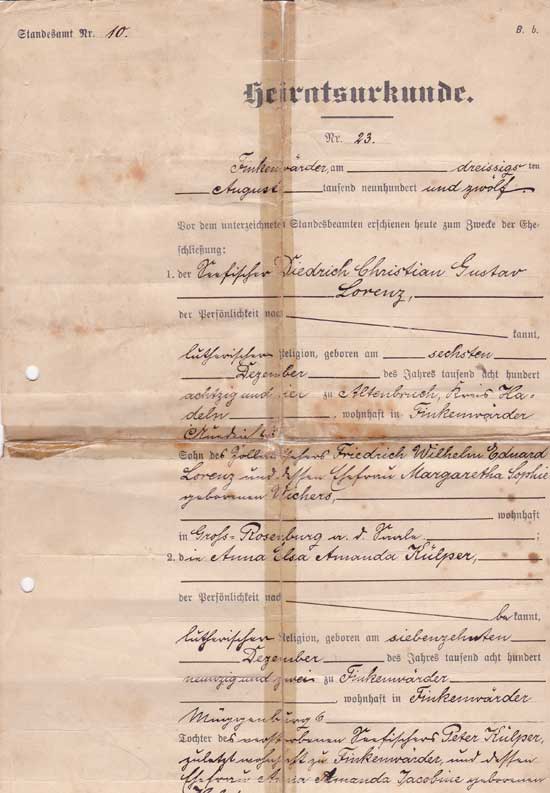 Standesamt Nr. 10.
B. b.
Heiratsurkunde.
Nr. 23.
Finkenwärder, am dreissigsten
August tausend neunhundert und zwölf.
Vor dem unterzeichneten Standesbeamten erschienen heute zum Zwecke der Ehe-
schließung:
1. der Seefischer Diedrich Christian Gustav
Lorenz,
der Persönlichkeit nach kannt,
lutherischer Religion, geboren am sechsten
Dezember des Jahres tausend acht hundert
achtzig und vier zu Altenbruch, Kreis Ha-
deln, wohnhaft in Finkenwärder
Sohn des Friedrich Wilhelm Eduard
Lorenz und dessen Ehefrau Margaretha Sophie
geborenen Wichers,
wohnhaft
in Gross-Rosenburg a. d. Saale;
2. die Anna Elsa Amanda Külper,
der Persönlichkeit nach bekannt,
lutherischer Religion, geboren am siebenzehnten
Dezember des Jahres tausend acht hundert
neunzig und zwei zu Finkenwärder
, wohnhaft in Finkenwärder
Müggenburg 6
Tochter des verstorbenen Seefischers Peter Külper,
zuletzt wohnhaft zu Finkenwärder, und dessen
Ehefrau Anna Amanda Jacobine geborenen